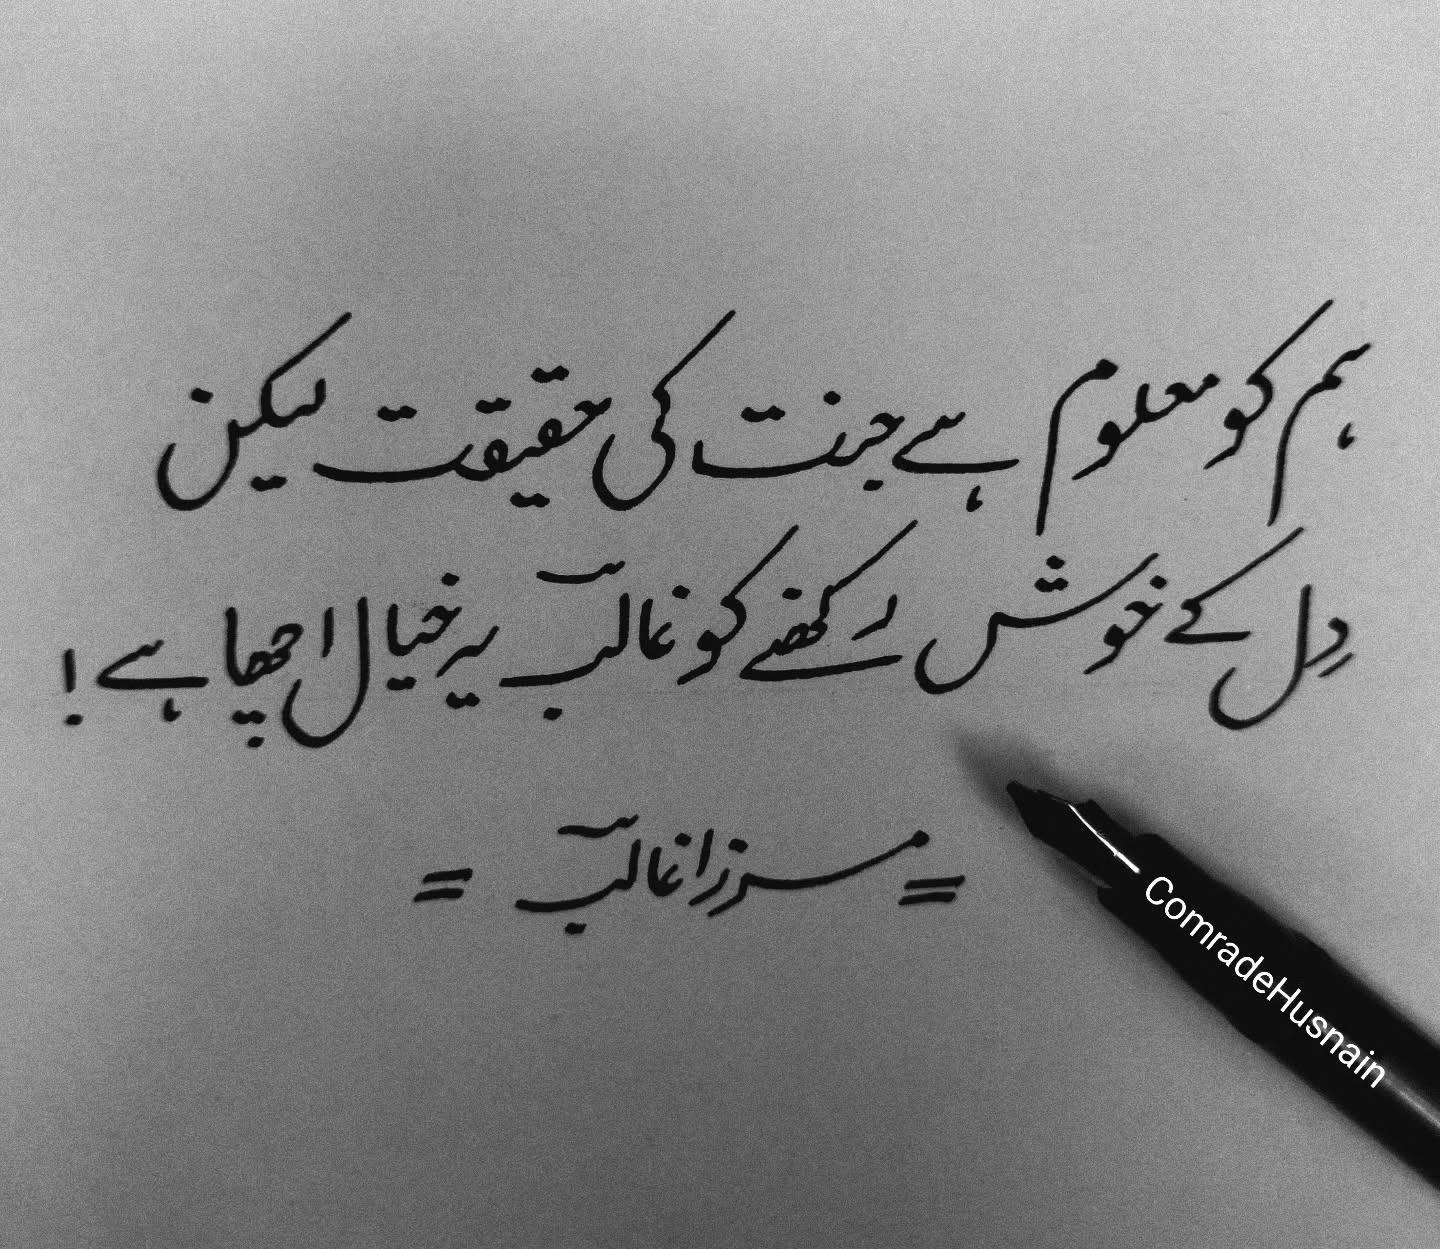 ہم کو معلوم ہے جنت کی حقیقت لیکن
دِل کے خوش رکھنے کو غالبؔ یہ خیال اچھا ہے !
= مرزا غالبؔ =
ComradeHusnain